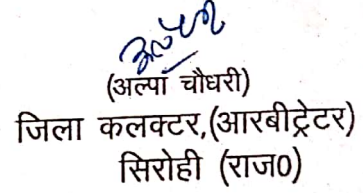 (अल्पा चौधरी)
जिला कलक्टर,(आरबीट्रेटर)
सिरोही (राज0)